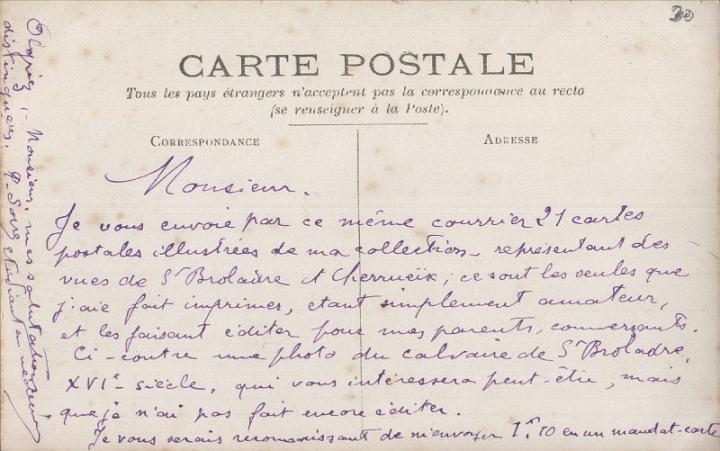 30
CARTE POSTALE
Tous les pays étrangers n'acceptent pas la correspondance au recto
(se renseigner à la Poste).
CORRESPONDANCE
ADRESSE
Monsieur.
Je vous envoie par ce même courrier 21 cartes
postales illustrées de ma collection representant des
vues de St Broladre et Cherrueix; ce sont les seules que
j'aie fait imprimer, etant simplement amateur,
et les faisant éditer pour mes parents, commerçants.
Ci-contre une photo du calvaire de St Broladre,
XVIe siècle, qui vous intéressera peut-être, mais
que je n'ai pas fait encore éditer.
Je vous serais reconnaissant de m'envoyer 1fr 50 en un mandat-carte
Agréez, Monsieur, mes salutations
distinguées. étudiant en médecine